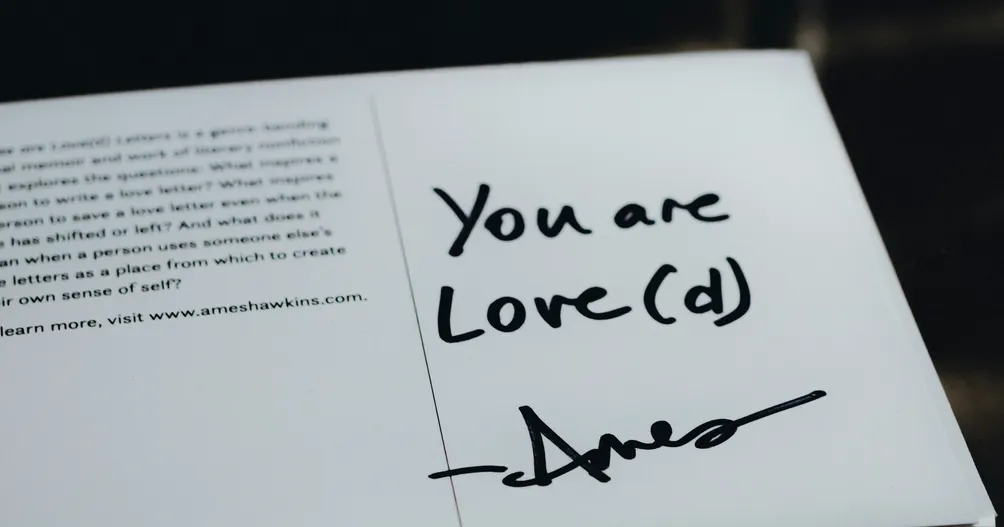 are Love(d) Letters is a genre-bending
memoir and work of literary nonfiction
explores the questions: What inspires a
to write a love letter? What inspires
to save a love letter even when the
has shifted or left? And what does it
when a person uses someone else's
letters as a place from which to create
own sense of self?
learn more, visit www.ameshawkins.com.
You are
Love(d)
- Ames